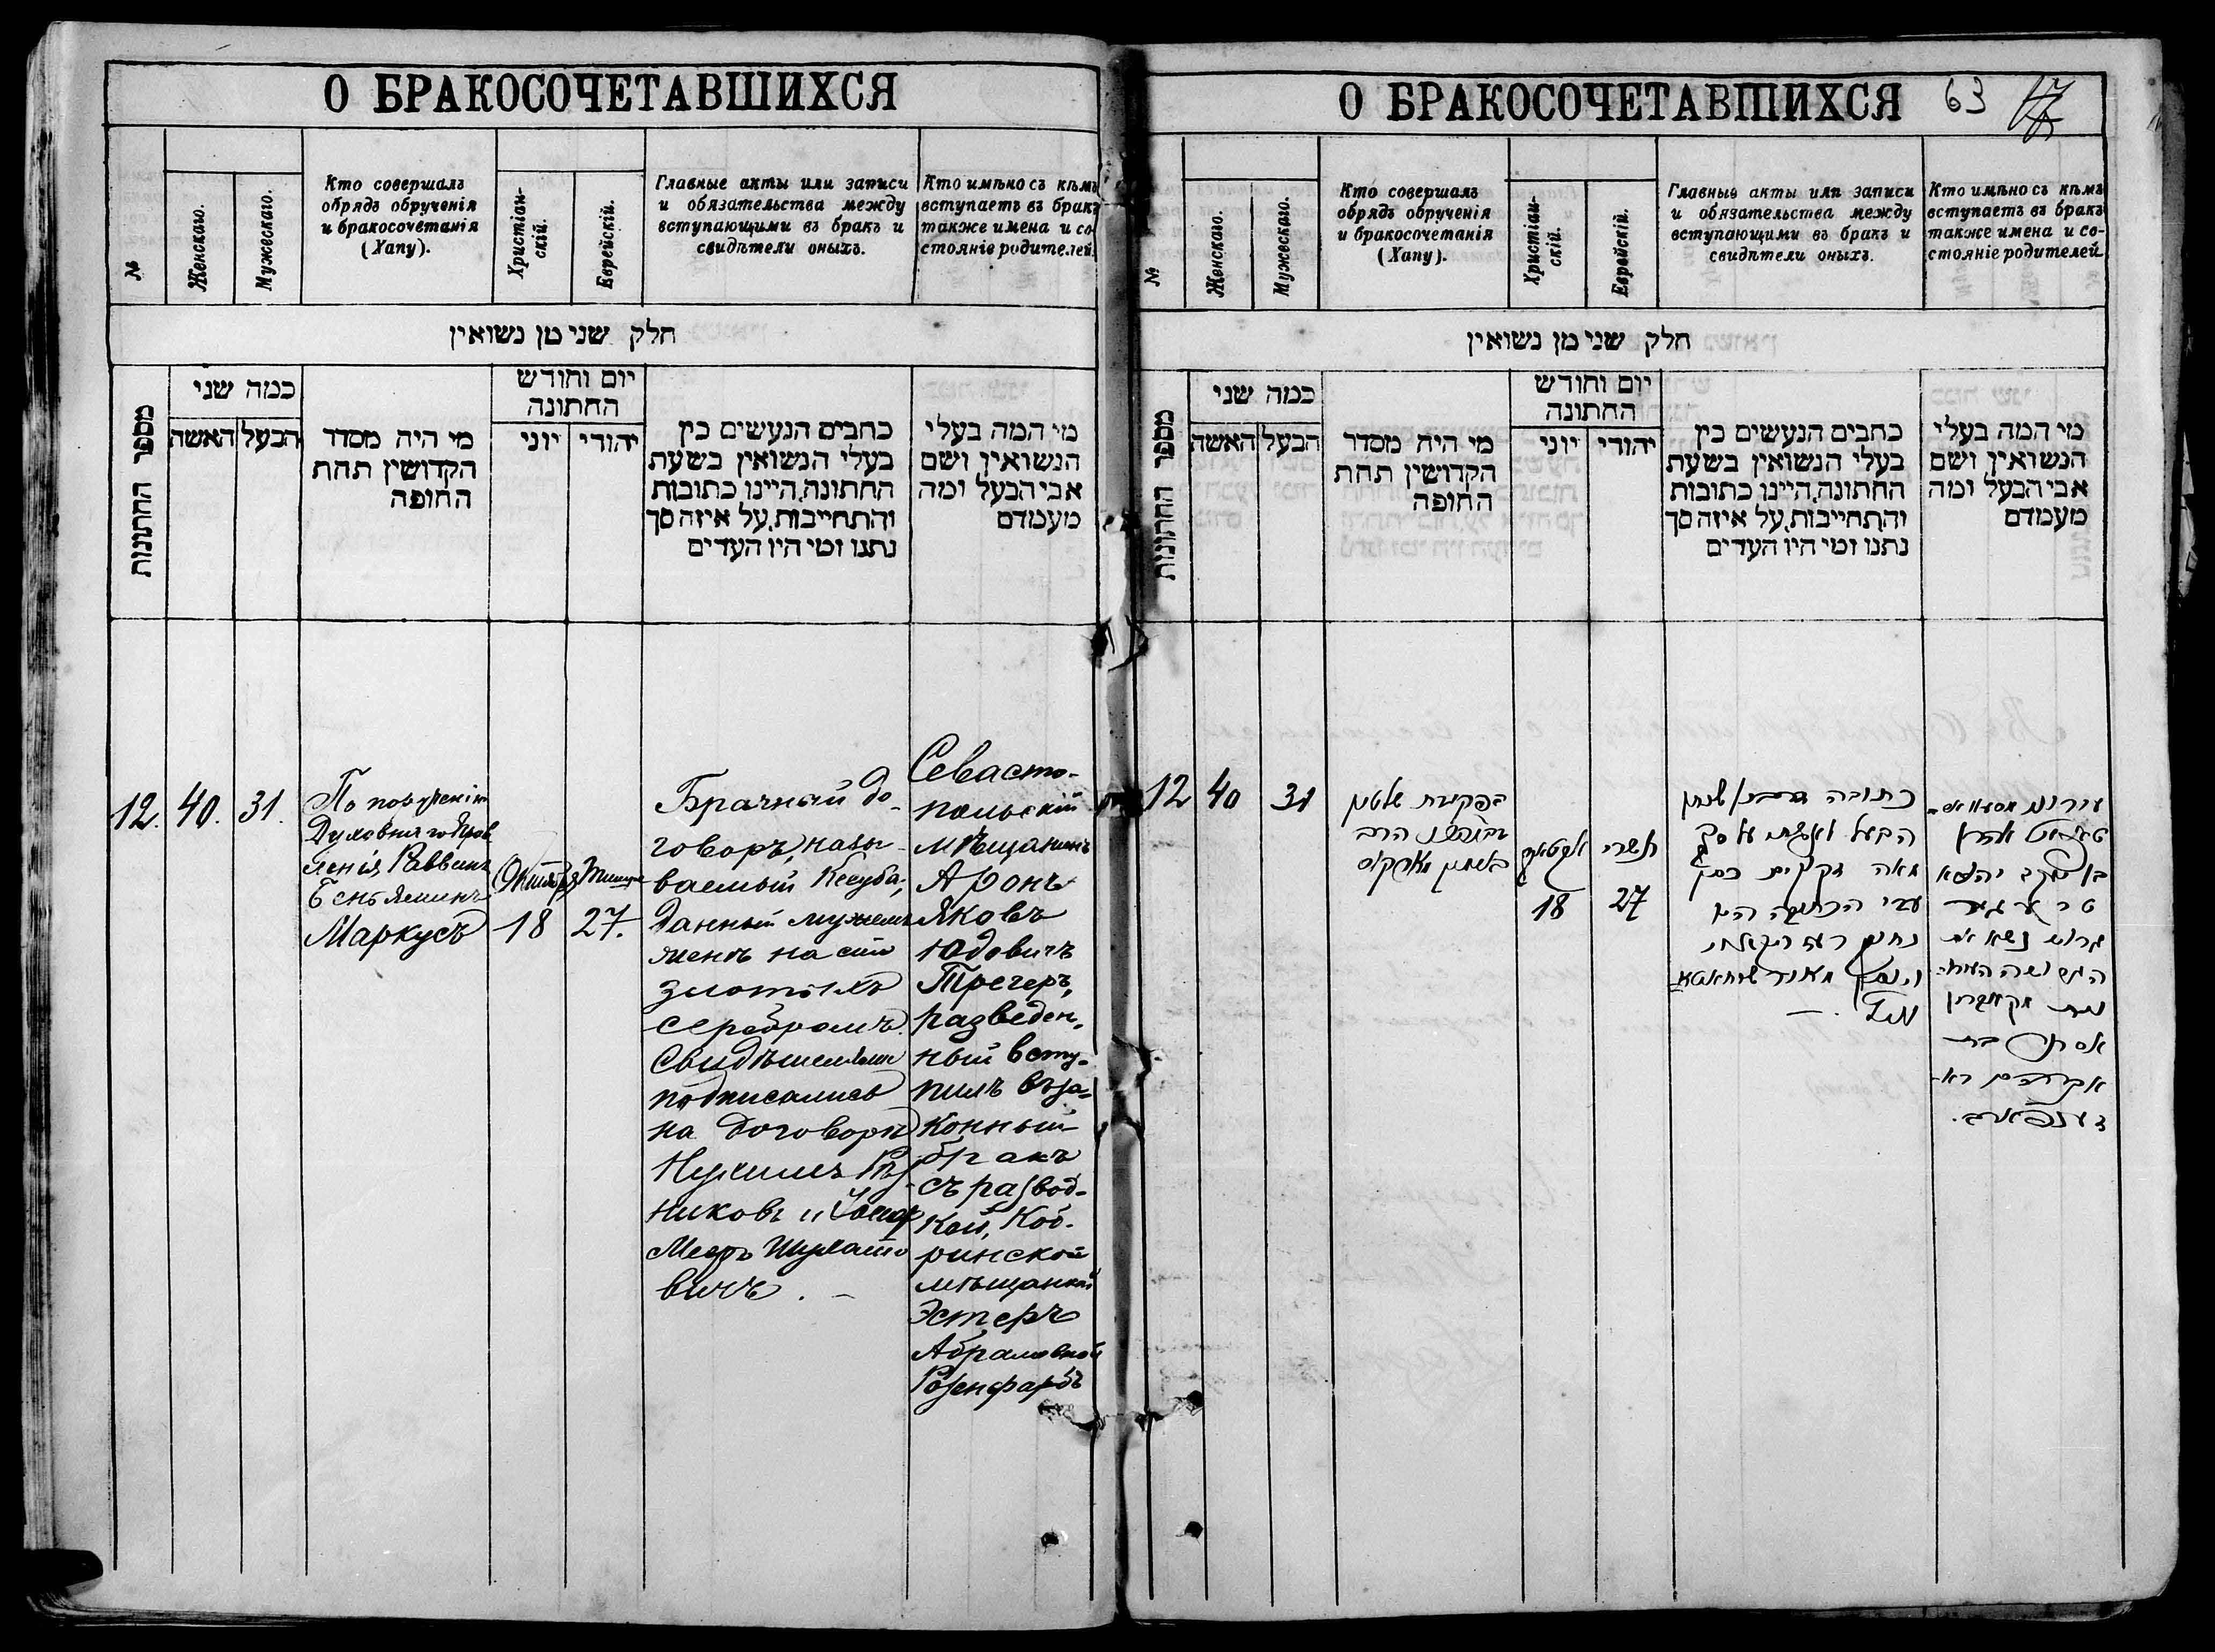 О БРАКОСОЧЕТАВШИХСЯ
№
Женскаго.
Мужескаго.
Кто совершалъ
обрядъ обрученія
и бракосочетанія
(Хапу).
Христіан-
скій.
Еврейскій.
Главные акты или записи
и обязательства между
вступающими въ бракъ и
свидѣтели оныхъ.
Кто имѣно съ кѣмъ
вступаетъ въ бракъ
также имена и со-
стояніе родителей.
חלק שני מן נשואין
מספר החתונות
כמה שני
האשה
הבעל
מי היה מסדר
הקדושין תחת
החופה
יום וחודש
החתונה
יוני
יהודי
כתבים הנעשים בין
בעלי הנשואין בשעת
החתונה, היינו כתובות
והתחייבות, על איזה סך
נתנו ומי היו העדים
מי המה בעלי
הנשואין ושם
אבי הבעל ומה
מעמדם
12.
40.
31.
По порученію
Духовнаго Прав
ленія Раввинъ
Беньяминъ
Маркусъ
Октября
18
Тишри
27.
Брачный до-
говоръ, назы-
ваемый Кесуба,
данный мужемъ
женѣ на сто
злотыхъ
серебромъ.
Свидѣтелями
подписались
на договорѣ
Нухимъ Рѣз
никовъ и
Мееръ Шухато
вичъ. –
Севасто-
польскій
мѣщанинъ
Аронъ
Яковъ
Юдовичъ
Трегеръ,
разведен-
ный всту-
пилъ въ за-
конный
бракъ
съ развод-
кой, Коб-
ринской
мѣщанкой
Эстеръ
Абрамовной
Розенфарбъ
О БРАКОСОЧЕТАВШИХСЯ
63
17
№
Женскаго.
Мужескаго.
Кто совершалъ
обрядъ обрученія
и бракосочетанія
(Хапу).
Христіан-
скій.
Еврейскій.
Главные акты или записи
и обязательства между
вступающими въ бракъ и
свидѣтели оныхъ.
Кто имѣно съ кѣмъ
вступаетъ въ бракъ
также имена и со-
стояніе родителей
חלק שני מן נשואין
מספר החתונות
כמה שני
האשה
הבעל
מי היה מסדר
הקדושין תחת
החופה
יום וחודש
החתונה
יוני
יהודי
כתבים הנעשים בין
בעלי הנשואין בשעת
החתונה, היינו כתובות
והתחייבות, על איזה סך
נתנו ומי היו העדים
מי המה בעלי
הנשואין ושם
אבי הבעל ומה
מעמדם
12
40
31
הרב
18
תשרי
27
כתובה שנתן
הבעל לאשתו על סך
מאה זקוקים כסף
עדי הכתובה היו
נחום
מאיר
אהרן
בן יעקב יהודא
טרעגער
גרוש נשא את
הגרושה
אסתר בת
אברהם רא-
זענפארב.